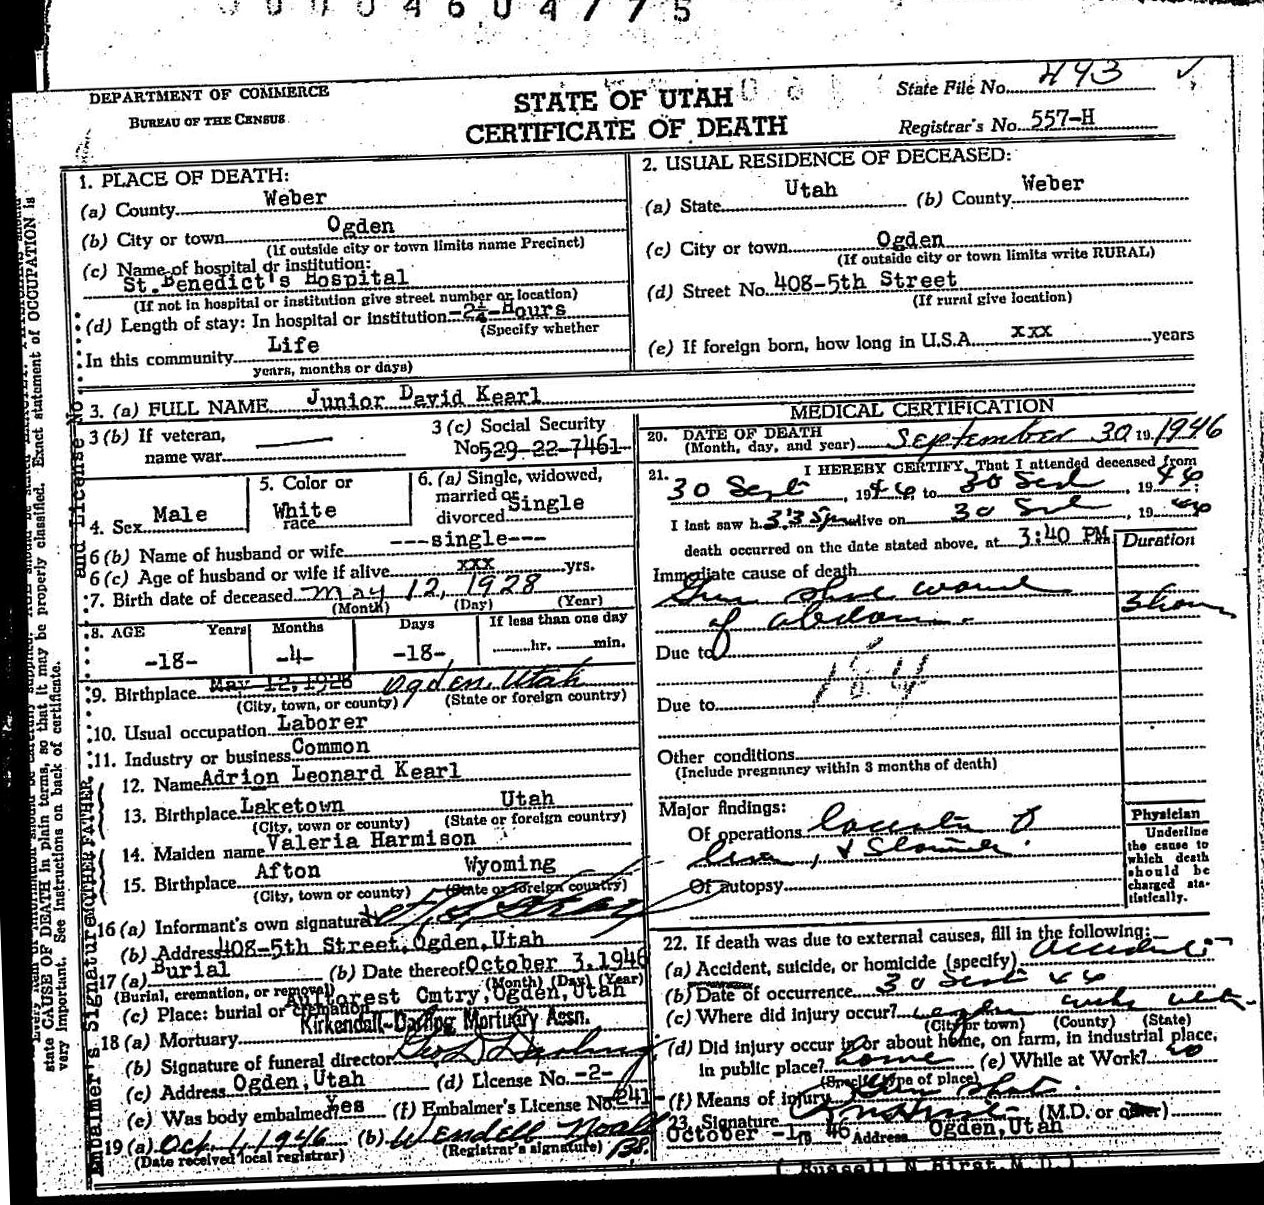 0004604775
DEPARTMENT OF COMMERCE
BUREAU OF THE CENSUS
STATE OF UTAH
CERTIFICATE OF DEATH
State File No. 493
Registrar's No. 557-H
1. PLACE OF DEATH:
(a) County Weber
(b) City or town Ogden
(If outside city or town limits name Precinct)
(c) Name of hospital or institution:
St. Benedict's Hospital
(If not in hospital or institution give street number or location)
(d) Length of stay: In hospital or institution -2¼-Hours
(Specify whether
In this community Life
years, months or days)
2. USUAL RESIDENCE OF DECEASED:
(a) State Utah (b) County Weber
(c) City or town Ogden
(If outside city or town limits write RURAL)
(d) Street No. 408-5th Street
(If rural give location)
(e) If foreign born, how long in U.S.A. xxx years
3. (a) FULL NAME Junior David Kearl
3 (b) If veteran,
name war
3 (c) Social Security
No. 529-22-7461
4. Sex Male
5. Color or
race White
6. (a) Single, widowed,
married or
divorced Single
6 (b) Name of husband or wife ---single---
6 (c) Age of husband or wife if alive xxx yrs.
7. Birth date of deceased May 12, 1928
(Month) (Day) (Year)
8. AGE Years Months Days If less than one day
-18- -4- -18- hr. min.
9. Birthplace May 12, 1928 Ogden, Utah
(City, town, or county) (State or foreign country)
10. Usual occupation Laborer
11. Industry or business Common
FATHER
12. Name Adrion Leonard Kearl
13. Birthplace Laketown Utah
(City, town or county) (State or foreign country)
MOTHER
14. Maiden name Valeria Harmison
15. Birthplace Afton Wyoming
(City, town or county) (State or foreign country)
16 (a) Informant's own signature
(b) Address 408-5th Street, Ogden, Utah
17 (a) Burial (b) Date thereof October 3, 1946
(Burial, cremation, or removal) (Month) (Day) (Year)
(c) Place: burial or cremation Aultorest Cmtry, Ogden, Utah
18 (a) Mortuary Kirkendall-Darling Mortuary Assn.
(b) Signature of funeral director Geo D Darling
(c) Address Ogden, Utah (d) License No. -2-
(e) Was body embalmed? Yes (f) Embalmer's License No. -241-
19 (a) Oct 1, 1946 (b) Wendell Noall
(Date received local registrar) (Registrar's signature)
MEDICAL CERTIFICATION
20. DATE OF DEATH
(Month, day, and year) September 30 19 1946
21. I HEREBY CERTIFY, That I attended deceased from
30 Sept, 1946 to 30 Sept, 1946
I last saw h alive on 30 Sept, 1946
death occurred on the date stated above, at 3:40 PM
Duration
Immediate cause of death
Gun shot wound
of abdomen. 3 hours
Due to
184
Due to
Other conditions
(Include pregnancy within 3 months of death)
Major findings:
Of operations
liver, & Stomach.
Of autopsy
Physician
Underline
the cause to
which death
should be
charged sta-
tistically.
22. If death was due to external causes, fill in the following:
(a) Accident, suicide, or homicide (specify) accident
(b) Date of occurrence 30 Sept 46
(c) Where did injury occur? Ogden Weber Utah
(City or town) (County) (State)
(d) Did injury occur in or about home, on farm, in industrial place,
in public place? home (e) While at Work? no
(Specify type of place)
(f) Means of injury Gun Shot
23. Signature (M.D. or other)
October -1, 19 46 Address Ogden, Utah
( Russell N Hirst, M.D.)
Embalmer's Signature and License No.
state CAUSE OF DEATH in plain terms, so that it may be properly classified. Exact statement of OCCUPATION is
very important. See instructions on back of certificate.